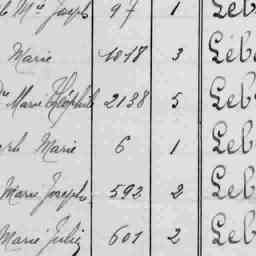 Mie Joseph 97 1 Leb
Marie 1018 3 Léb
Marie Théophile 2138 5 Leb
Marie 6 1 Leb
Marie Joseph 592 2 Leb
Marie Julie 601 2 Leb